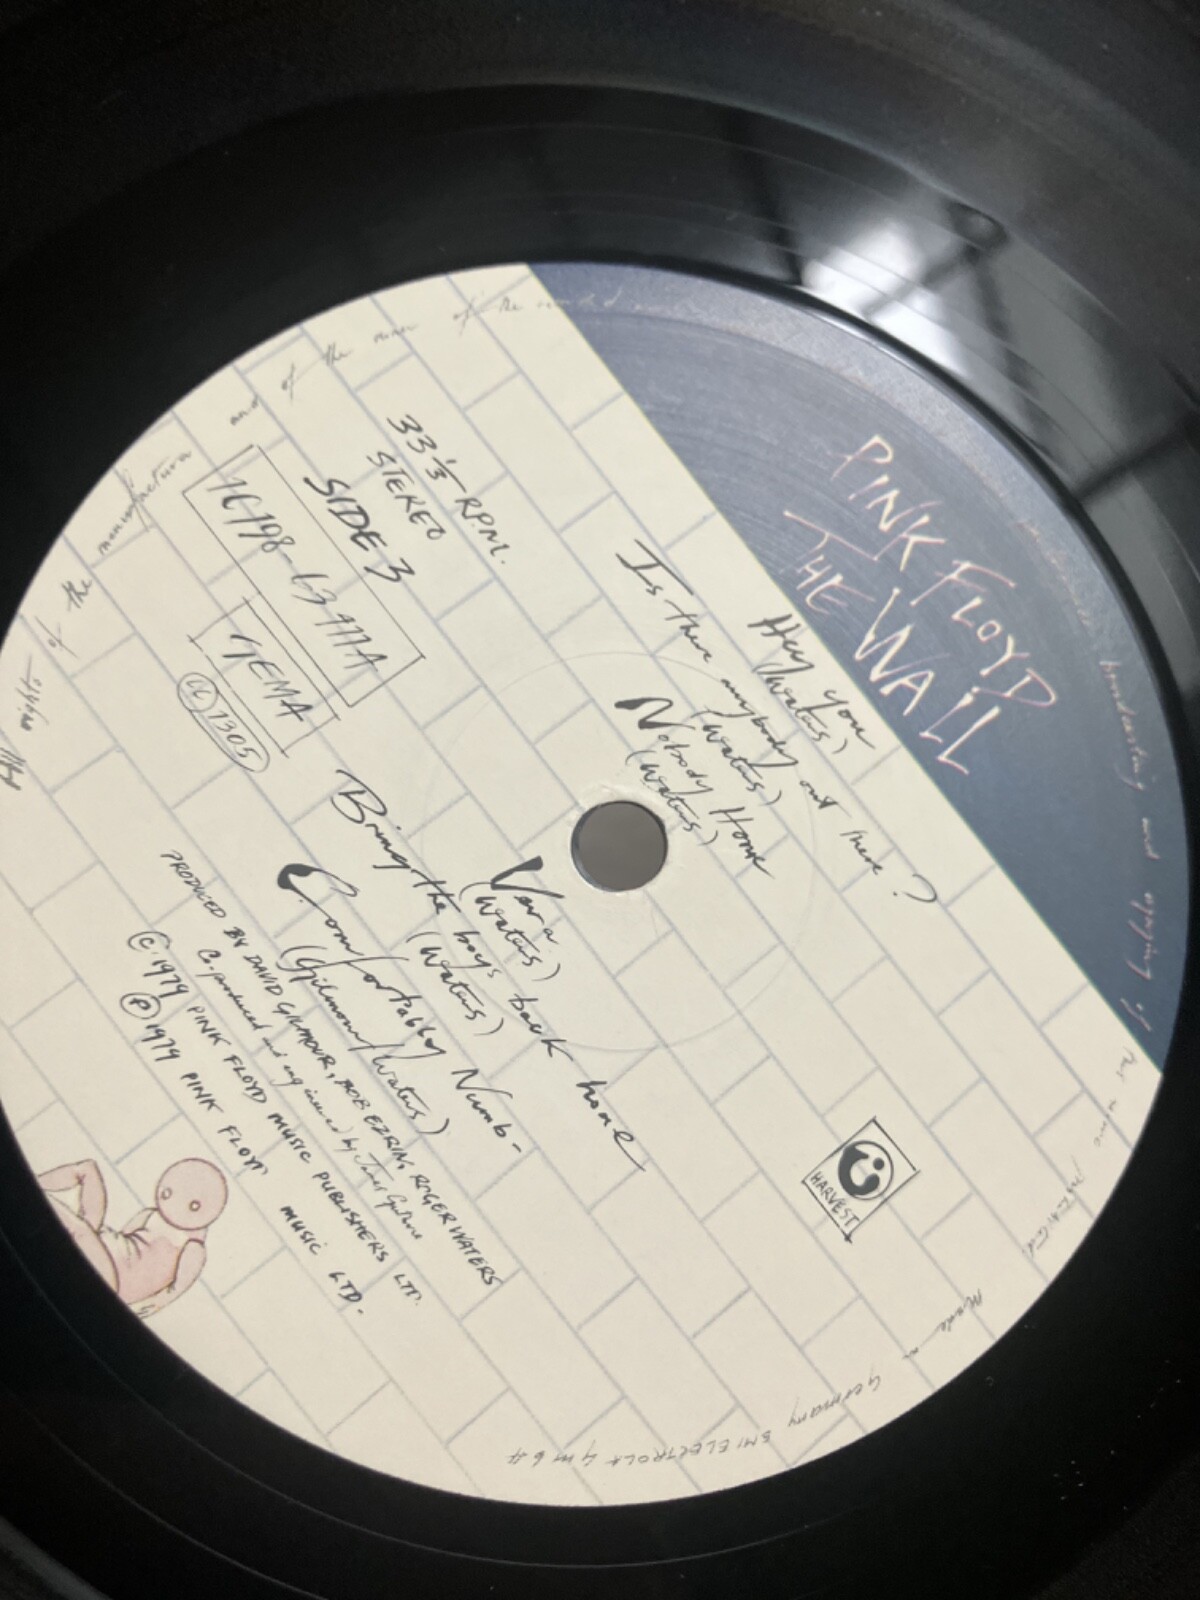 PINK FLOYD
THE WALL
Hey you
(Waters)
Is there anybody out there?
(Waters)
Nobody Home
(Waters)
Vera
(Waters)
Bring the boys back home
(Waters)
Comfortably Numb-
(Gilmour/Waters)
PRODUCED BY DAVID GILMOUR, BOB EZRIN, ROGER WATERS
Co. produced and engineered by James Guthrie
© 1979 PINK FLOYD MUSIC PUBLISHERS LTD.
℗ 1979 PINK FLOYD MUSIC LTD.
33⅓ R.P.M.
STEREO
SIDE 3
1C 198-63 411A
GEMA
LC 1305
HARVEST
rights of the manufacturer and of the owner of the recorded
broadcasting
Made in Germany EMI ELECTROLA GmbH